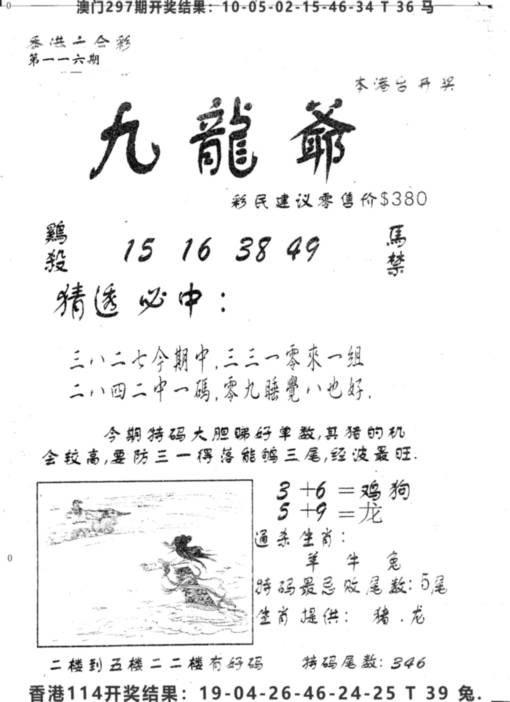 澳门297期开奖结果：10-05-02-15-46-34 T 36 马
香港六合彩
第一一六期
本港台开奖
九龍爺
彩民建议零售价$380
鷄殺
15 16 38 49
馬禁
猜透必中：
三八二七今期中,三三一零來一组
二八四二中一碼,零九睡覺八也好.
今期特码大胆睇好单数,其猪的机
会较高,要防三一得落能鸭三尾,经波最旺.
3+6=鸡狗
5+9=龙
通杀生肖：
羊 牛 兔
特码最忌败尾数：5尾
生肖提供：猪.龙
二楼到五楼二二楼有好码
特码尾数：346
香港114开奖结果：19-04-26-46-24-25 T 39 兔.